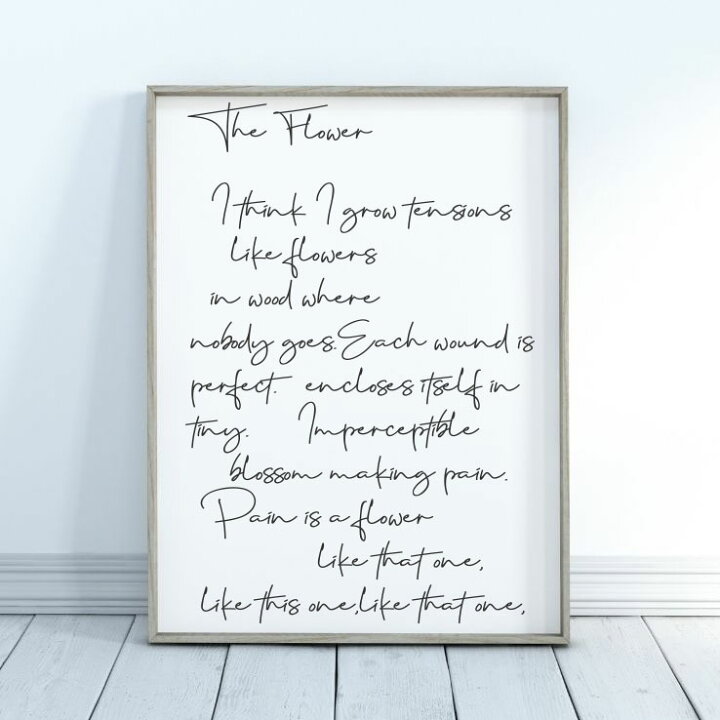 The Flower
I think I grow tensions
like flowers
in wood where
nobody goes. Each wound is
perfect. encloses itself in
tiny. Imperceptible
blossom making pain.
Pain is a flower
like that one,
like this one, like that one,